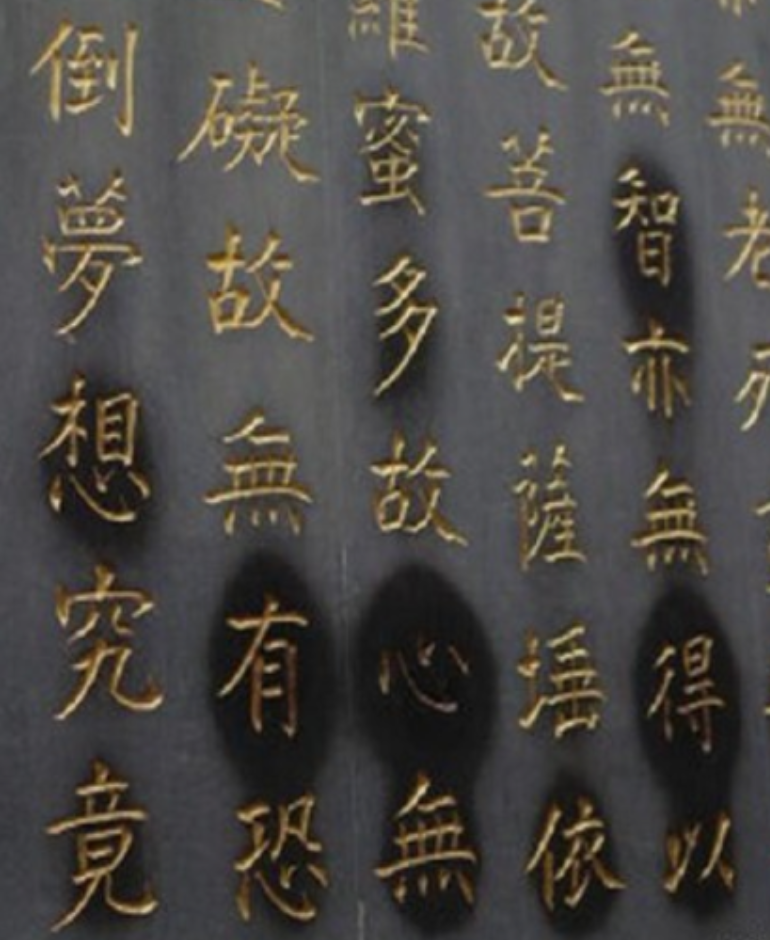 無老死
無智亦無得以
故菩提薩埵依
羅蜜多故心無
礙故無有恐
倒夢想究竟